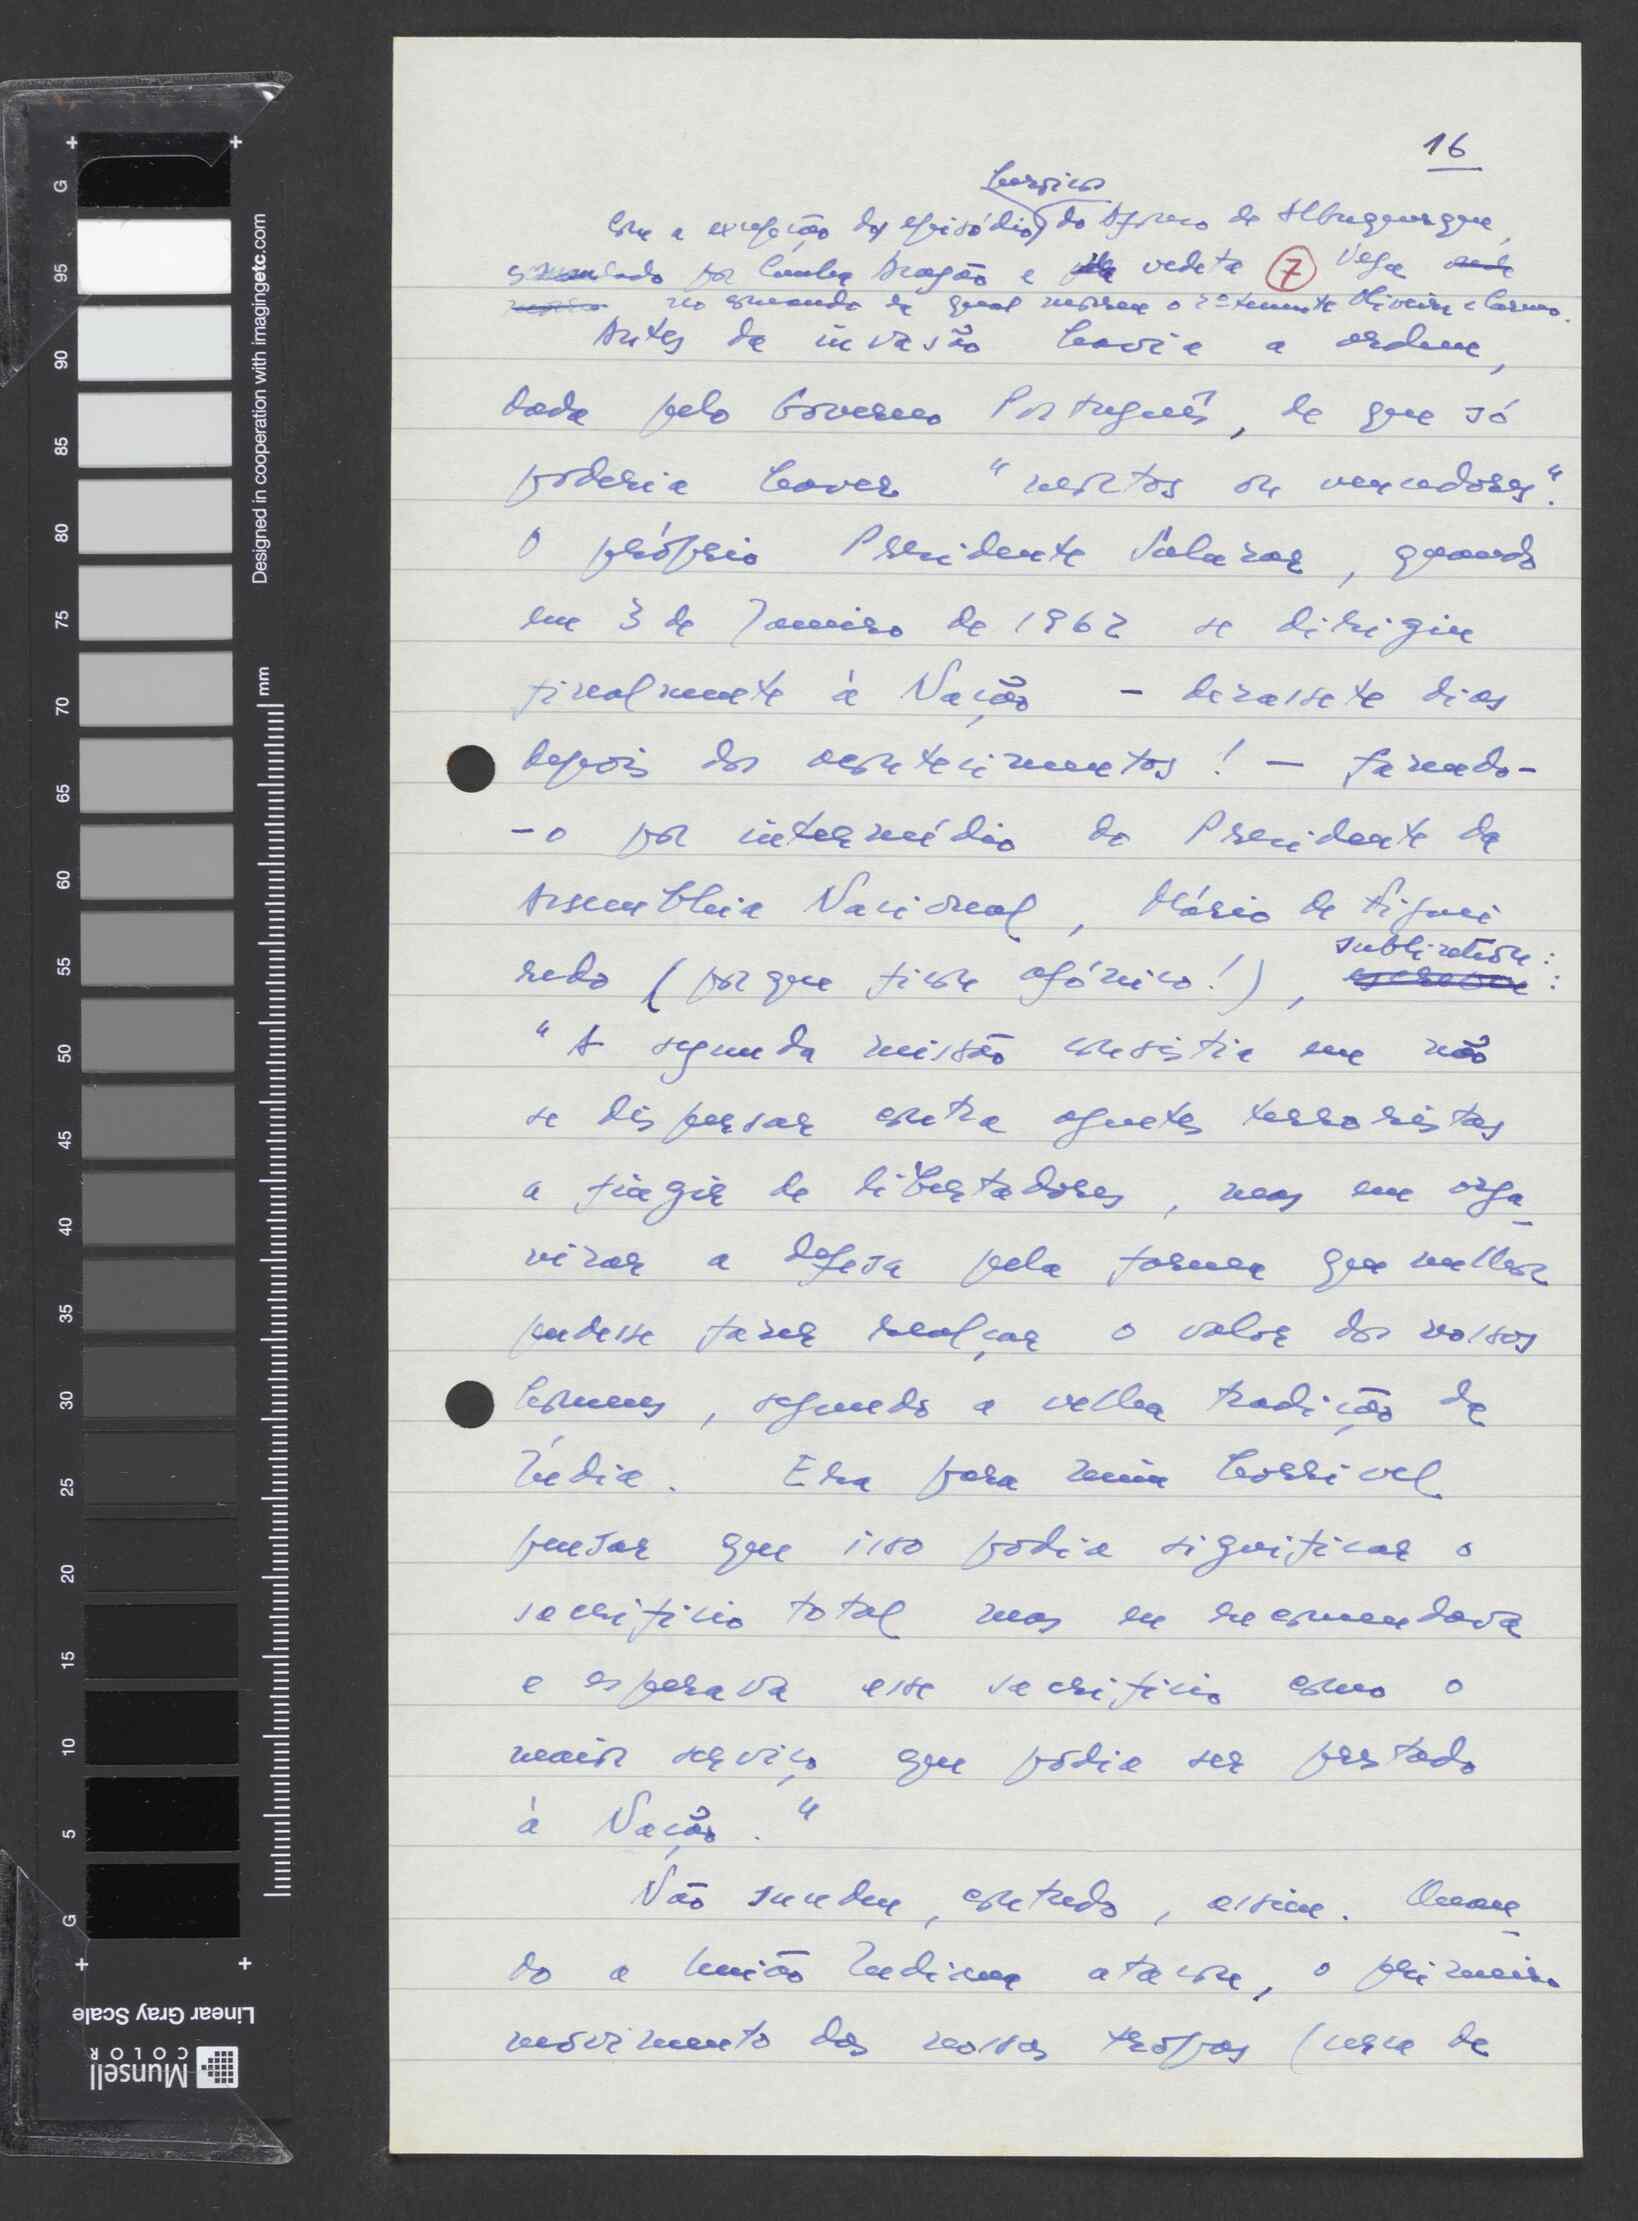 16
heroicos
Com a excepção dos episódios do Afonso de Albuquerque,
comandado por Cunha Aragão e da vedeta 7 Vega onde
no comando da qual morreu o 2º tenente Oliveira e Carmo.
Antes da invasão havia a ordem,
dada pelo Governo Português, de que só
poderia haver "mortos ou vencedores".
O próprio Presidente Salazar, quando
em 3 de Janeiro de 1962 se dirigiu
finalmente à Nação - dezassete dias
depois dos acontecimentos! - fazendo-
-o por intermédio do Presidente da
Assembleia Nacional, Mário de Figuei
redo (porque ficou afónico!), sublinhou:
"A segunda missão consistia em não
se dispersar contra agentes terroristas
a fingir de libertadores, mas em orga-
nizar a defesa pela forma que melhor
pudesse fazer realçar o valor dos nossos
homens, segundo a velha tradição da
Índia. Era para mim horrível
pensar que isso podia significar o
sacrifício total mas eu recomendava
e esperava esse sacrifício como o
maior serviço que podia ser prestado
à Nação."
Não sucedeu, contudo, assim. Quan-
do a União Indiana atacou, o primeiro
movimento das nossas tropas (cerca de
Designed in cooperation with imagingetc.com
mm
G 95 90 85 80 75 70 65 60 55 50 45 40 35 30 25 20 15 10 5 G
Linear Gray Scale
Munsell
COLOR